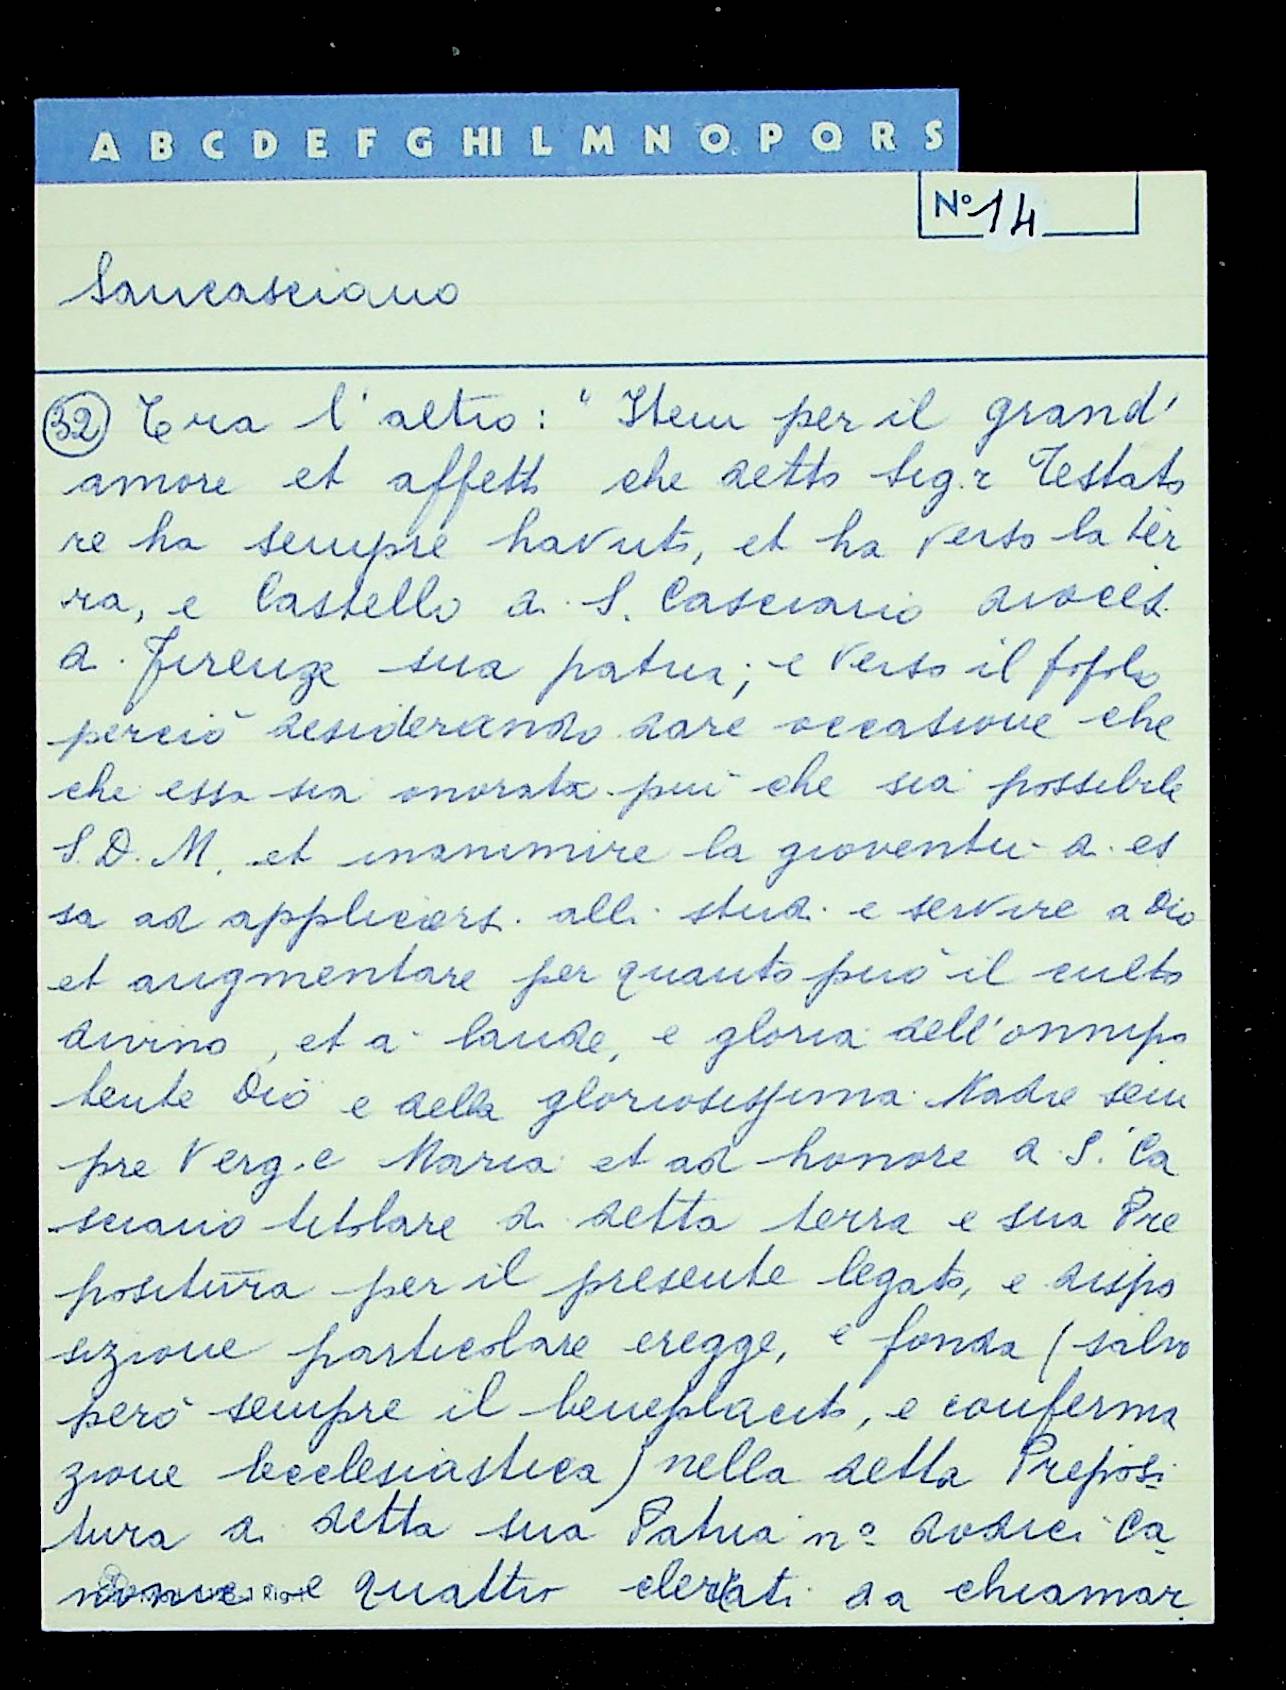 A B C D E F G HI L M N O P Q R S
N° 14
Sancasciano
32 Tra l'altro: "Item per il grand'
amore et affetto che detto Sig.r Testato
re ha sempre havuto, et ha verso la ter
ra, e Castello di S. Casciano dioces.
di Firenze sua patria; e verso il popolo
perciò desiderando dare occasione che
che essa sia onorata più che sia possibile
S.D.M. et inanimire la gioventù di es
sa ad applicarsi alli studi e servire a Dio
et augmentare per quanto può il culto
divino, et a laude, e gloria dell'onnipo
tente Dio e della gloriosissima Madre sem
pre Verg.e Maria et ad honore di S. Ca
sciano titolare di detta terra e sua Pre
positura per il presente legato, e dispo
sizione particolare eregge, e fonda (salvo
però sempre il beneplacito, e conferma
zione Ecclesiastica) nella detta Preposi
tura di detta sua Patria n° dodici Ca
e quattro clericati da chiamar